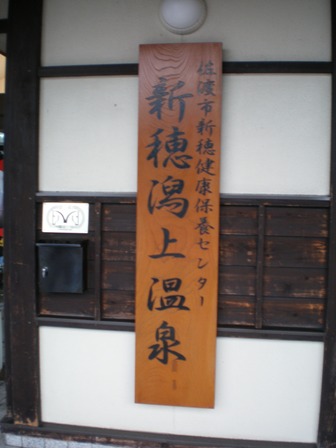 佐渡市新穂健康保養センター
新穂潟上温泉